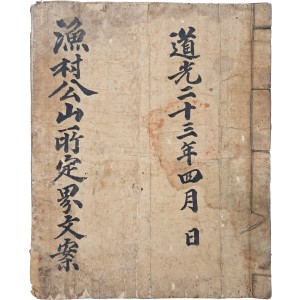 道光二十三年四月 日
漁村公山所定界文案